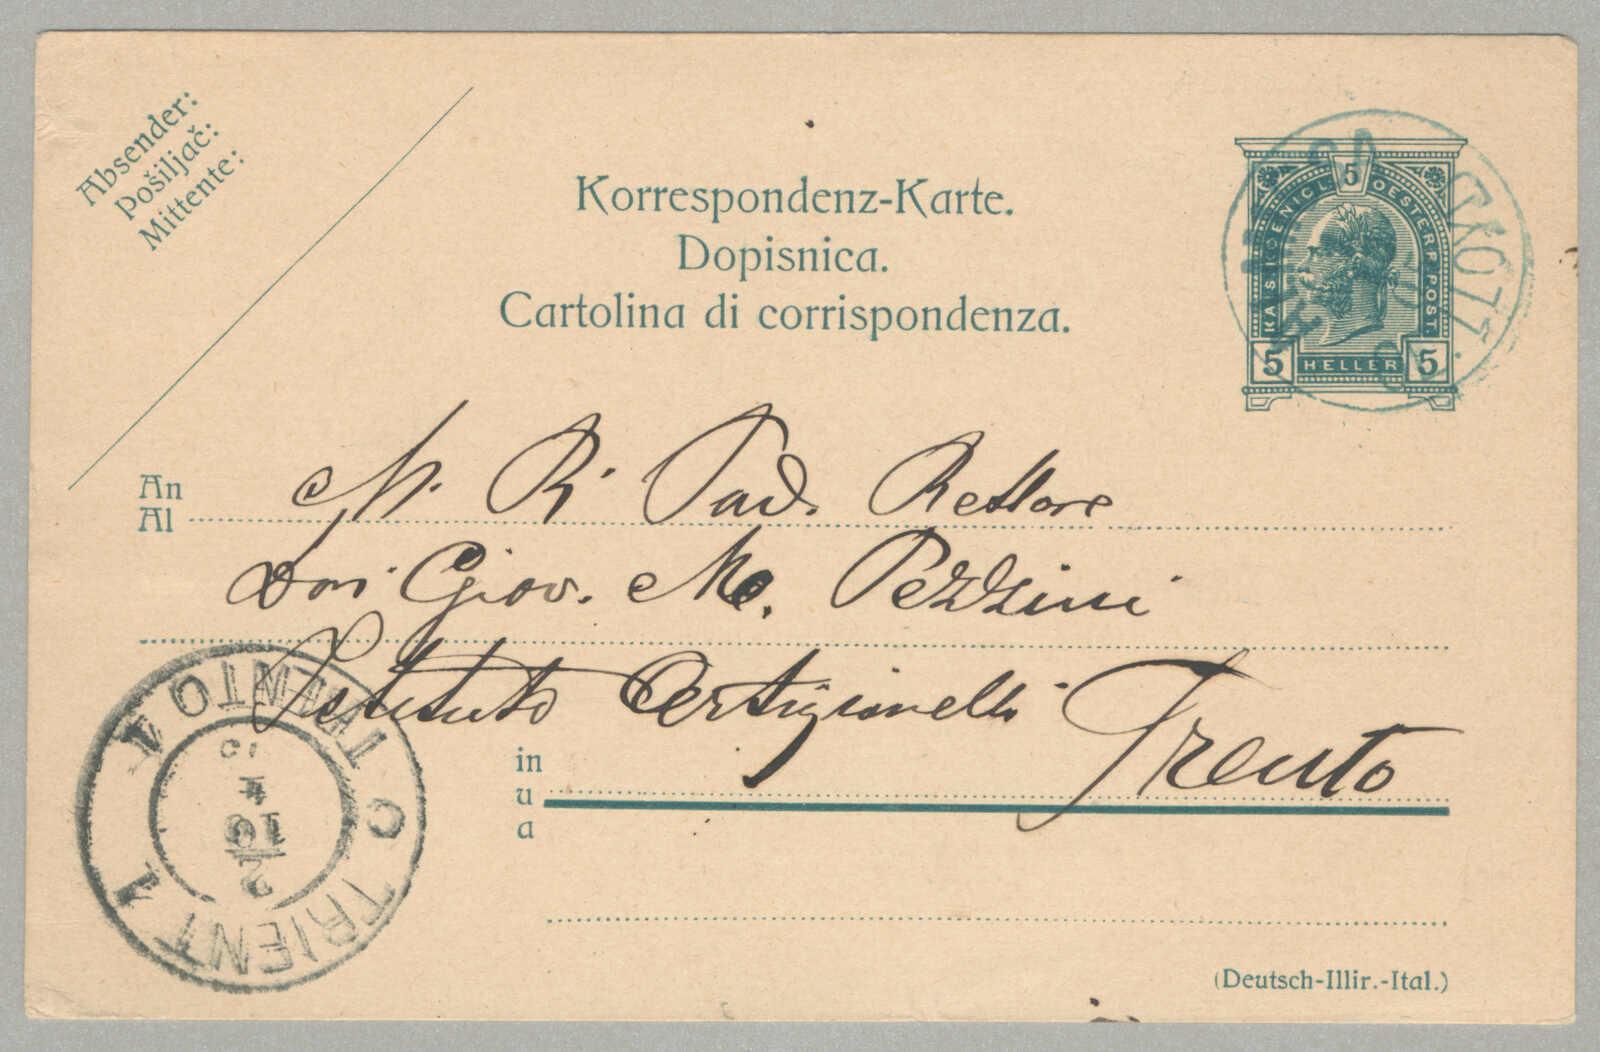 Absender:
Pošiljač:
Mittente:
Korrespondenz-Karte.
Dopisnica.
Cartolina di corrispondenza.
5
KAIS. KOENIGL. OESTERR. POST.
5 HELLER 5
An
Al
M. R. Pad. Rettore
Don Giov. Ma. Pezzini
Istituto Artigianelli Trento
in
u
a
TRIENT 1
TRENTO
2
10
(Deutsch-Illir.-Ital.)